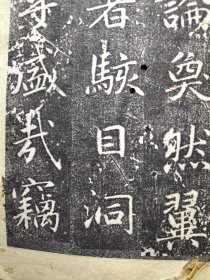 論奐然翼
者駭目洞
盛哉竊